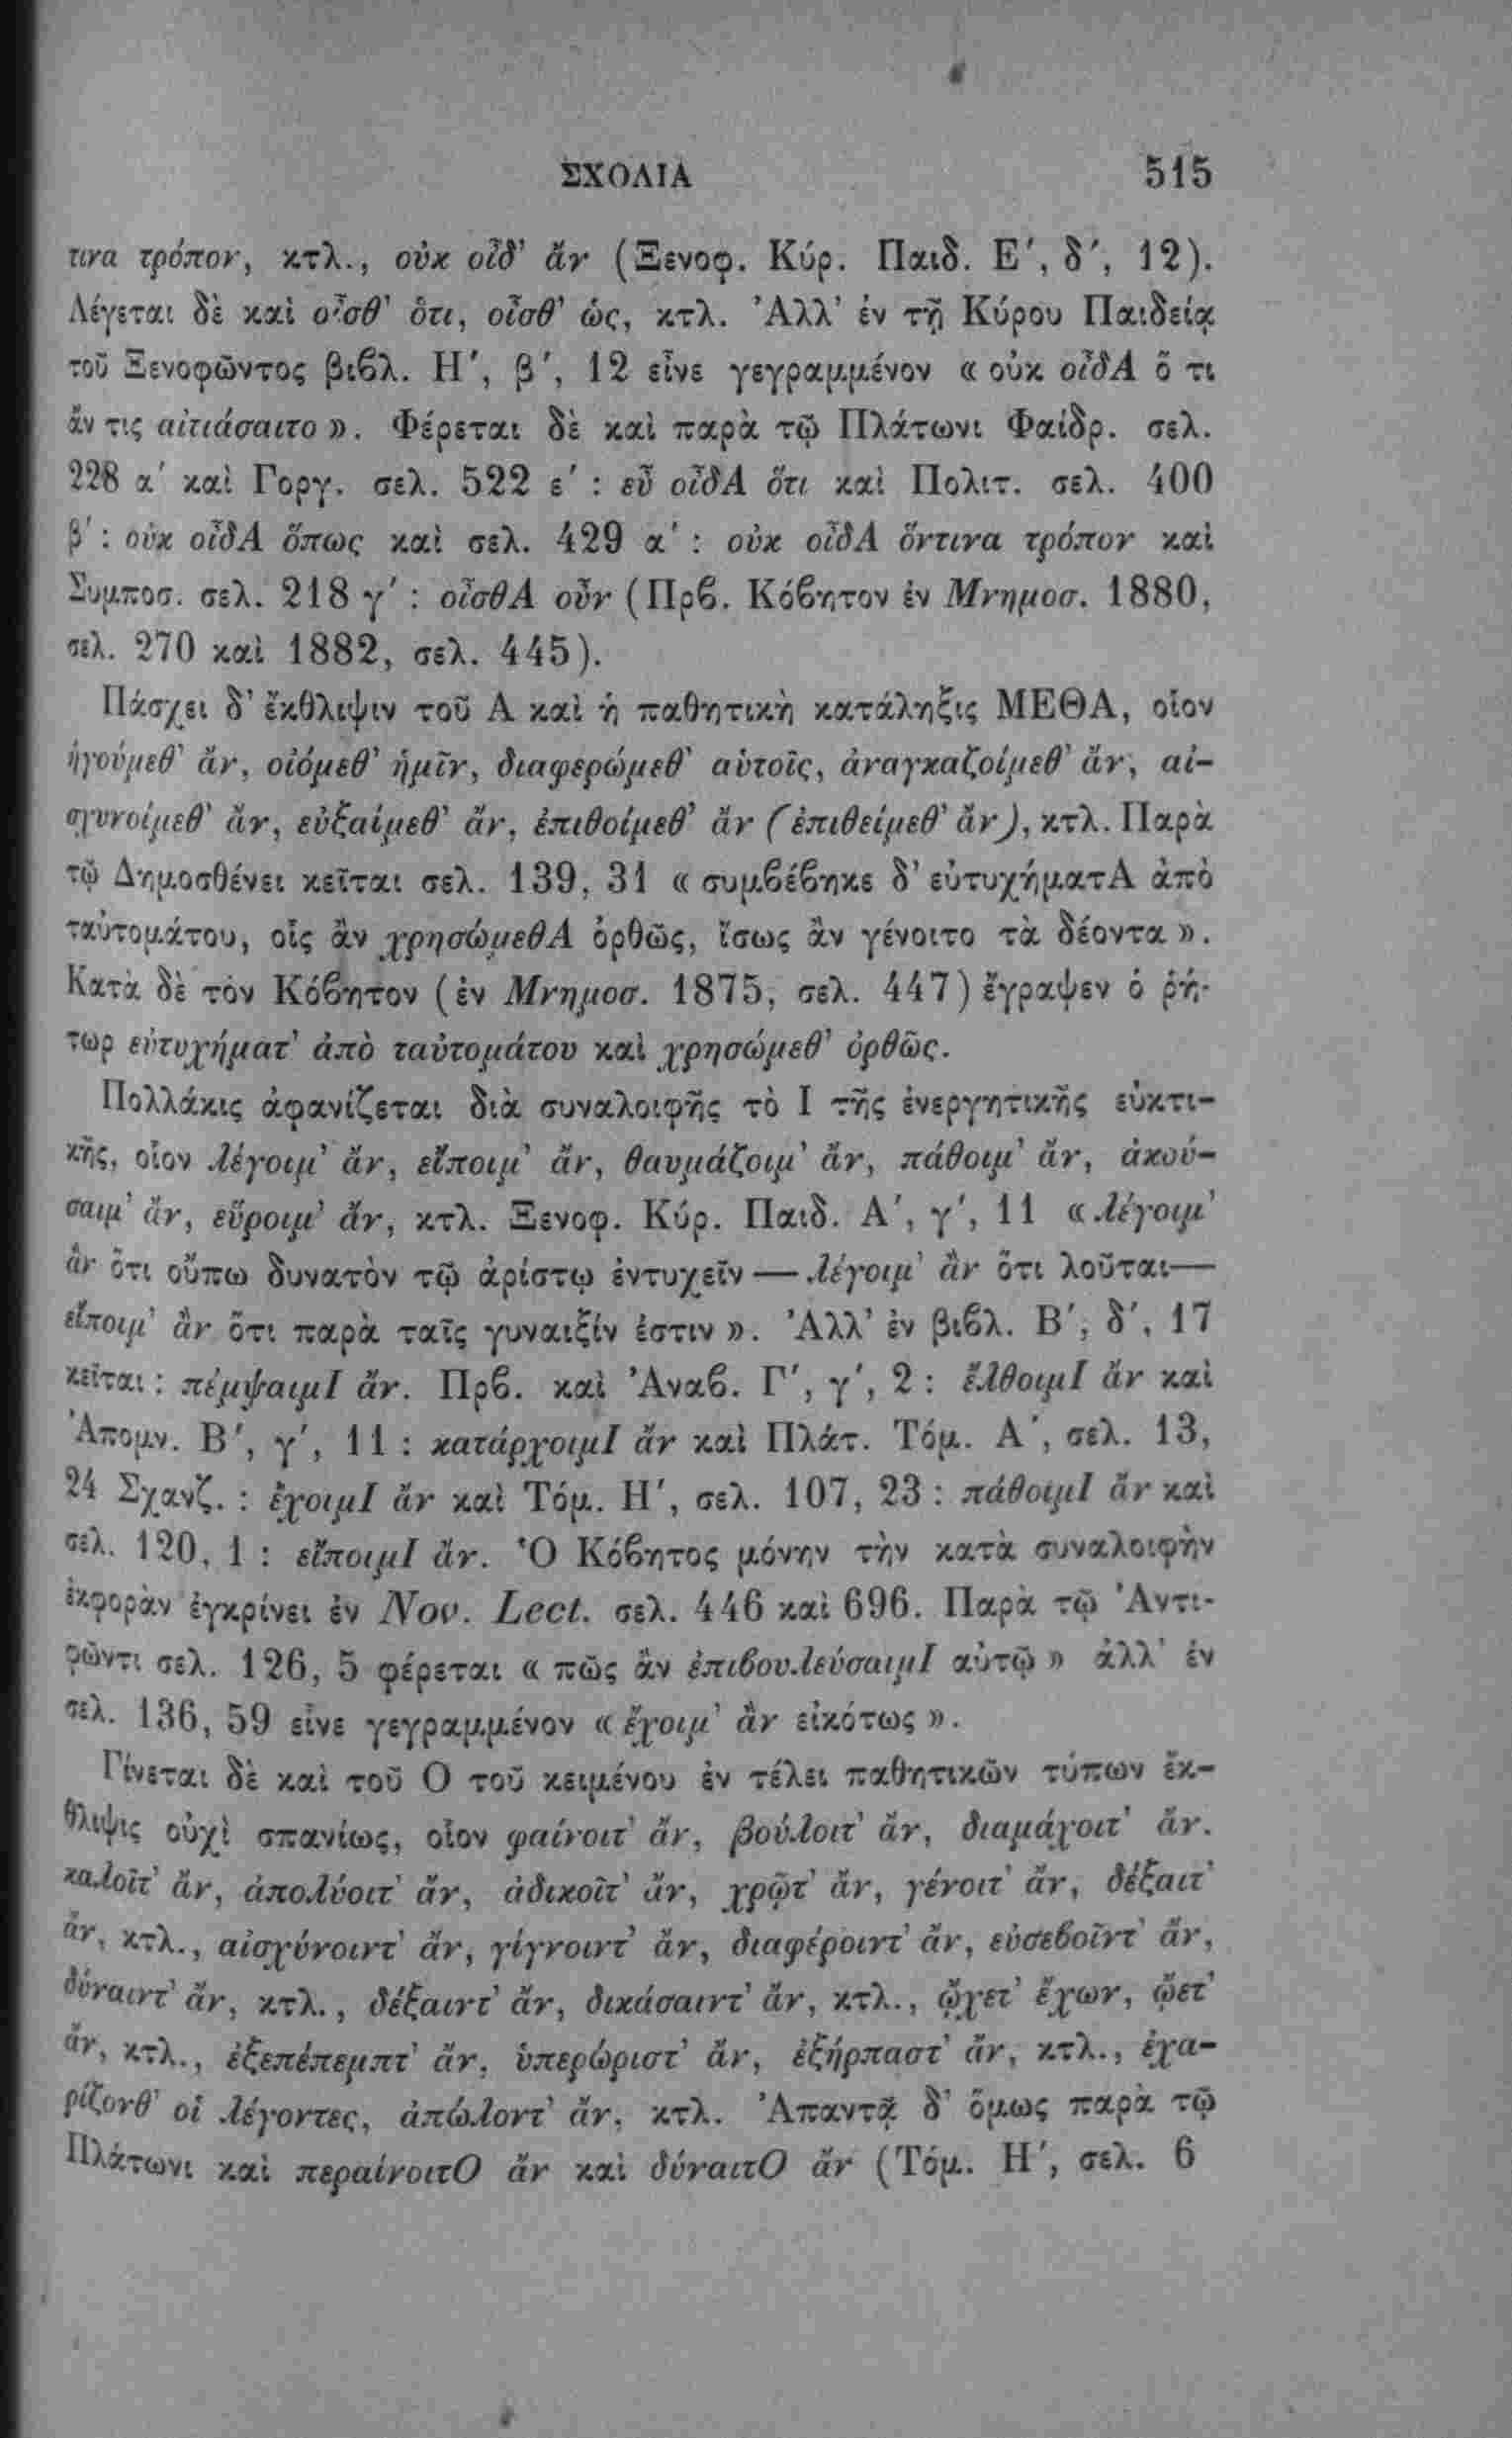 ΣΧΟΛΙΑ 515
τινα τρόπον, κτλ., οὐκ οἶδ' ἄν (Ξενοφ. Κύρ. Παιδ. Ε', δ', 12).
Λέγεται δὲ καὶ οἶσθ' ὅτι, οἶσθ' ὡς, κτλ. Ἀλλ' ἐν τῇ Κύρου Παιδείᾳ
τοῦ Ξενοφῶντος βιβλ. Η', β', 12 εἶνε γεγραμμένον « οὐκ οἶδΑ ὅ τι
ἄν τις αἰτιάσαιτο ». Φέρεται δὲ καὶ παρὰ τῷ Πλάτωνι Φαίδρ. σελ.
228 α' καὶ Γοργ. σελ. 522 ε' : εὖ οἶδΑ ὅτι καὶ Πολιτ. σελ. 400
β' : οὐκ οἶδΑ ὅπως καὶ σελ. 429 α' : οὐκ οἶδΑ ὅντινα τρόπον καὶ
Συμποσ. σελ. 218 γ' : οἶσθΑ οὖν (Πρβ. Κόβητον ἐν Μνημοσ. 1880,
σελ. 270 καὶ 1882, σελ. 445).
Πάσχει δ' ἔκθλιψιν τοῦ Α καὶ ἡ παθητικὴ κατάληξις ΜΕΘΑ, οἷον
ἡγούμεθ' ἄν, οἰόμεθ' ἡμῖν, διαφερώμεθ' αὐτοῖς, ἀναγκαζοίμεθ' ἄν, αἰ-
σχυνοίμεθ' ἄν, εὐξαίμεθ' ἄν, ἐπιθοίμεθ' ἄν (ἐπιθείμεθ' ἄν), κτλ. Παρὰ
τῷ Δημοσθένει κεῖται σελ. 139, 31 « συμβέβηκε δ' εὐτυχήματΑ ἀπὸ
ταὐτομάτου, οἷς ἂν χρησώμεθΑ ὀρθῶς, ἴσως ἂν γένοιτο τὰ δέοντα ».
Κατὰ δὲ τὸν Κόβητον (ἐν Μνημοσ. 1875, σελ. 447) ἔγραψεν ὁ ῥή-
τωρ εὐτυχήματ' ἀπὸ ταὐτομάτου καὶ χρησώμεθ' ὀρθῶς.
Πολλάκις ἀφανίζεται διὰ συναλοιφῆς τὸ Ι τῆς ἐνεργητικῆς εὐκτι-
κῆς, οἷον λέγοιμ' ἄν, εἴποιμ' ἄν, θαυμάζοιμ' ἄν, πάθοιμ' ἄν, ἀκού-
σαιμ' ἄν, εὕροιμ' ἄν, κτλ. Ξενοφ. Κύρ. Παιδ. Α', γ', 11 « λέγοιμ'
ἂν ὅτι οὔπω δυνατὸν τῷ ἀρίστῳ ἐντυχεῖν — λέγοιμ' ἂν ὅτι λοῦται —
εἴποιμ' ἂν ὅτι παρὰ ταῖς γυναιξίν ἐστιν ». Ἀλλ' ἐν βιβλ. Β', δ', 17
κεῖται : πέμψαιμΙ ἄν. Πρβ. καὶ Ἀναβ. Γ', γ', 2 : ἔλθοιμΙ ἄν καὶ
Ἀπομν. Β', γ', 11 : κατάρχοιμΙ ἄν καὶ Πλάτ. Τόμ. Α', σελ. 13,
24 Σχανζ. : ἔχοιμΙ ἄν καὶ Τόμ. Η', σελ. 107, 23 : πάθοιμΙ ἄν καὶ
σελ. 120, 1 : εἴποιμΙ ἄν. Ὁ Κόβητος μόνην τὴν κατὰ συναλοιφὴν
ἐκφορὰν ἐγκρίνει ἐν Nov. Lect. σελ. 446 καὶ 696. Παρὰ τῷ Ἀντι-
φῶντι σελ. 126, 5 φέρεται « πῶς ἂν ἐπιβουλεύσαιμΙ αὐτῷ » ἀλλ' ἐν
σελ. 136, 59 εἶνε γεγραμμένον « ἔχοιμ' ἂν εἰκότως ».
Γίνεται δὲ καὶ τοῦ Ο τοῦ κειμένου ἐν τέλει παθητικῶν τύπων ἔκ-
θλιψις οὐχὶ σπανίως, οἷον φαίνοιτ' ἄν, βούλοιτ' ἄν, διαμάχοιτ' ἄν.
καλοῖτ' ἄν, ἀπολύοιτ' ἄν, ἀδικοῖτ' ἄν, χρῷτ' ἄν, γένοιτ' ἄν, δέξαιτ'
ἄν, κτλ., αἰσχύνοιντ' ἄν, γίγνοιντ' ἄν, διαφέροιντ' ἄν, εὐσεβοῖντ' ἄν,
δύναιντ' ἄν, κτλ., δέξαιντ' ἄν, δικάσαιντ' ἄν, κτλ., ᾤχετ' ἔχων, ᾤετ'
ἄν, κτλ., ἐξεπέπεμπτ' ἄν, ὑπερώριστ' ἄν, ἐξήρπαστ' ἄν, κτλ., ἐχα-
ρίζονθ' οἱ λέγοντες, ἀπώλοντ' ἄν, κτλ. Ἀπαντᾷ δ' ὅμως παρὰ τῷ
Πλάτωνι καὶ περαίνοιτΟ ἄν καὶ δύναιτΟ ἄν (Τόμ. Η', σελ. 6